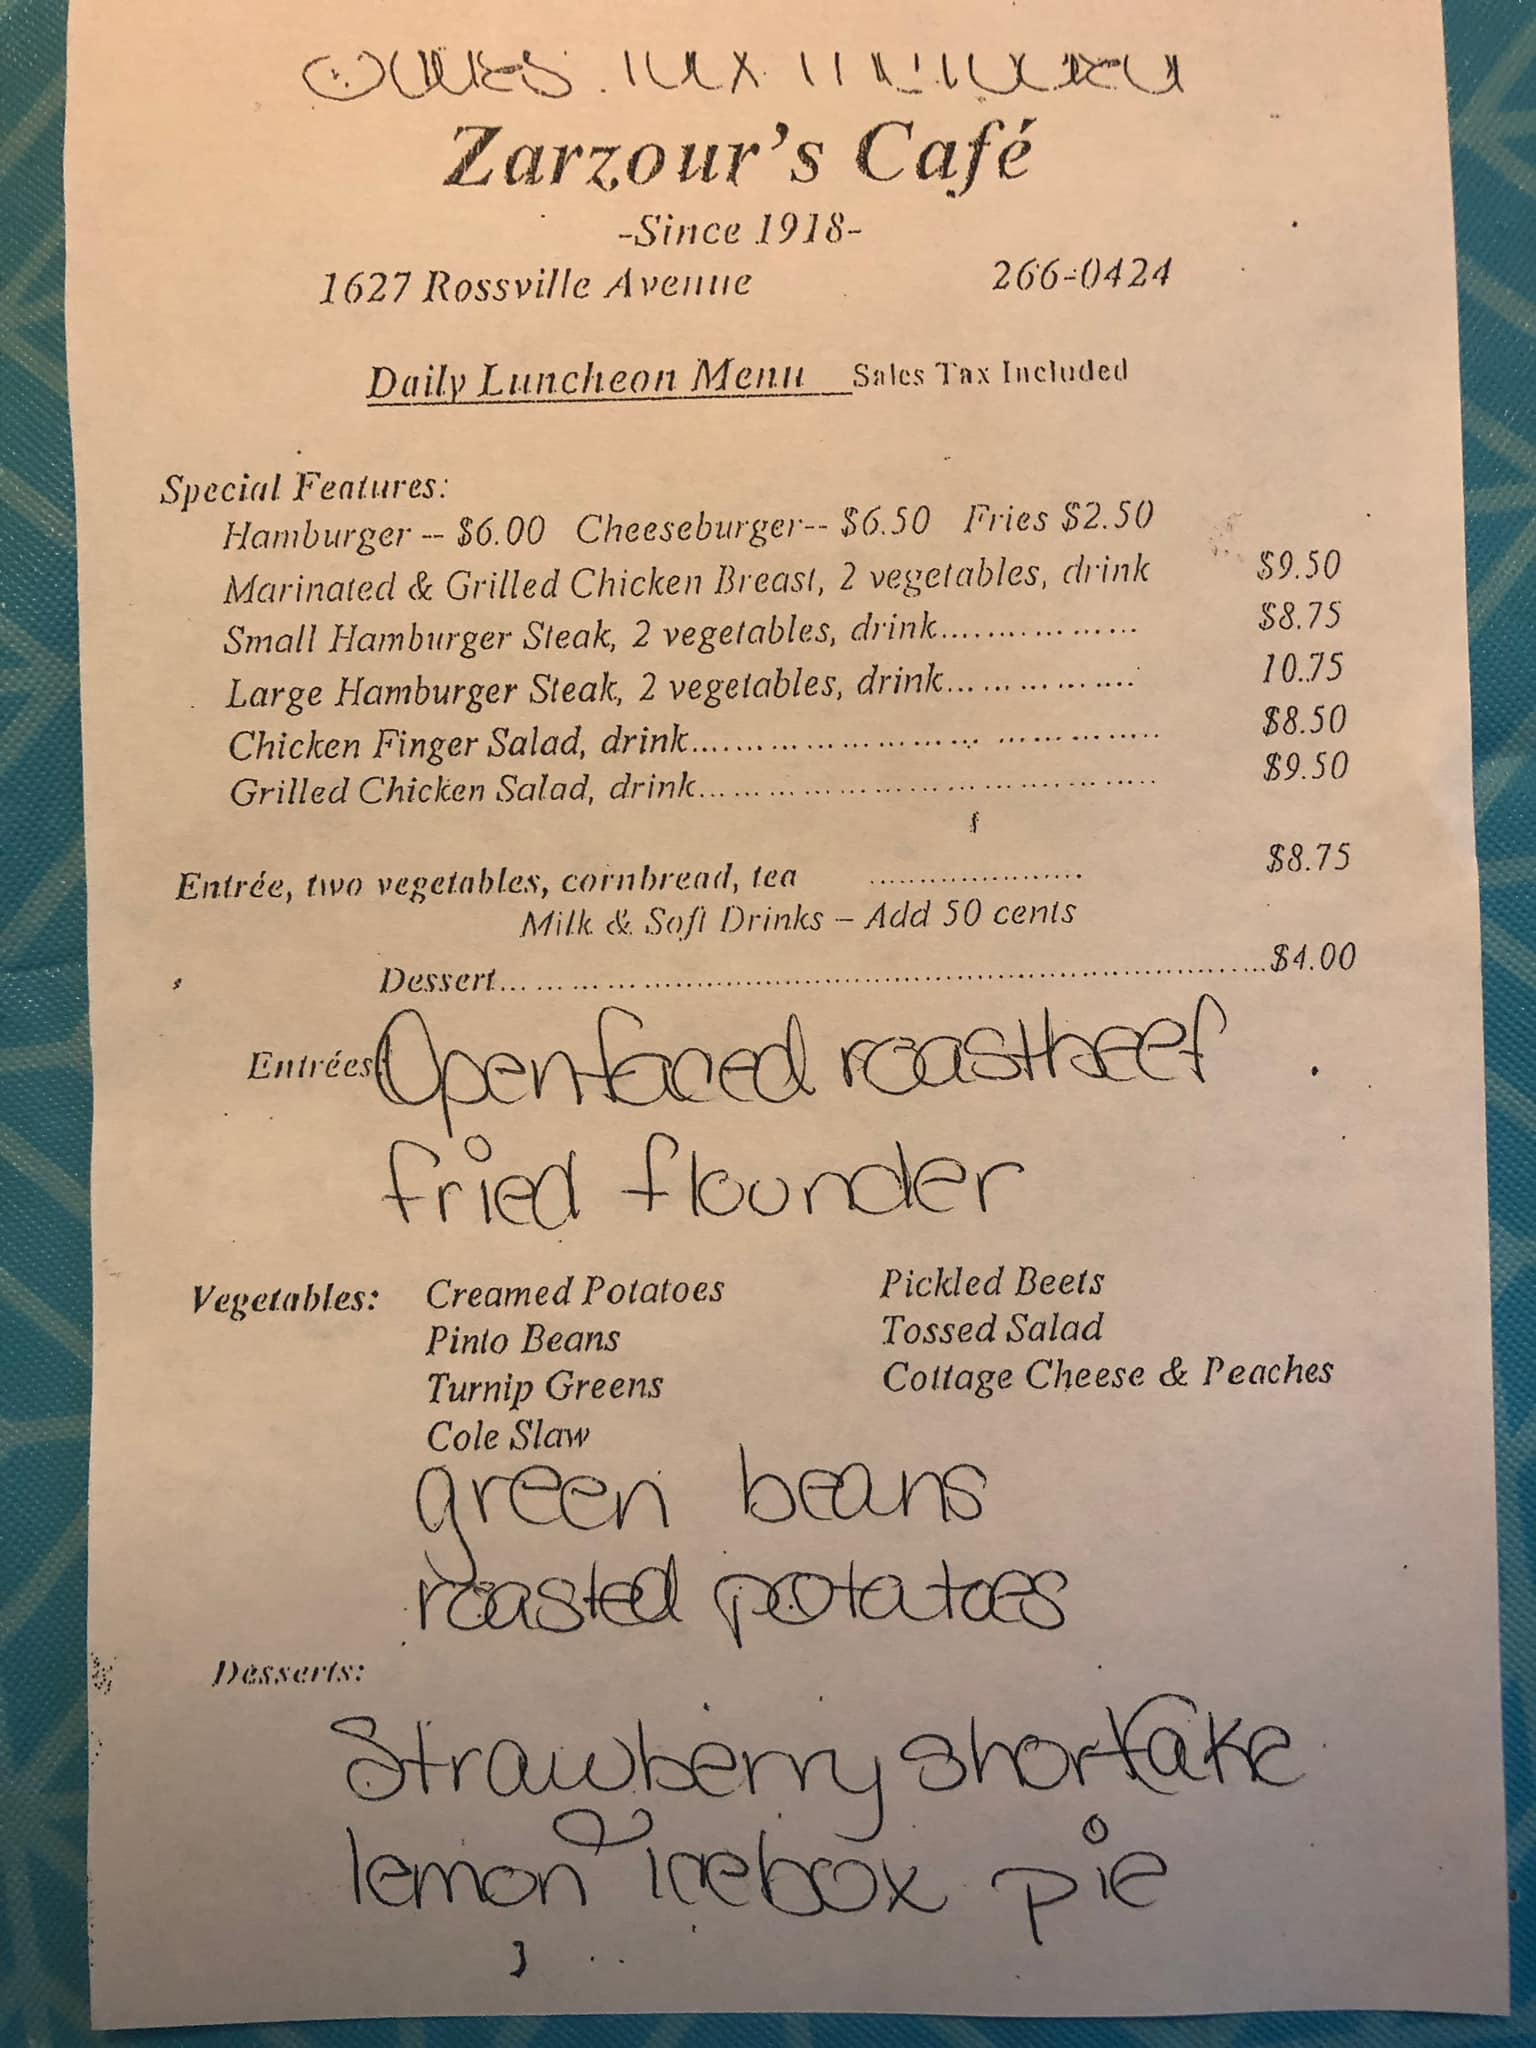 Zarzour's Café
-Since 1918-
1627 Rossville Avenue 266-0424
Daily Luncheon Menu Sales Tax Included
Special Features:
Hamburger -- $6.00 Cheeseburger-- $6.50 Fries $2.50
Marinated & Grilled Chicken Breast, 2 vegetables, drink $9.50
Small Hamburger Steak, 2 vegetables, drink.................. $8.75
Large Hamburger Steak, 2 vegetables, drink.................. 10.75
Chicken Finger Salad, drink....................................... $8.50
Grilled Chicken Salad, drink....................................... $9.50
Entrée, two vegetables, cornbread, tea ..................... $8.75
Milk & Soft Drinks – Add 50 cents
Dessert..........................................................................$4.00
Entrées: Openfaced roastbeef
fried flounder
Vegetables: Creamed Potatoes Pickled Beets
Pinto Beans Tossed Salad
Turnip Greens Cottage Cheese & Peaches
Cole Slaw
green beans
roasted potatoes
Desserts:
Strawberry shortcake
lemon icebox pie